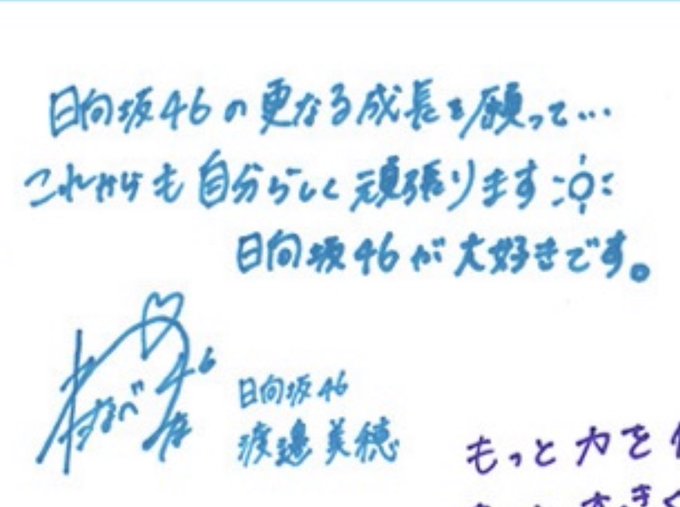 日向坂46の更なる成長を願って…
これからも自分らしく頑張ります
日向坂46が大好きです。
日向坂46
渡邉美穂
もっと力を